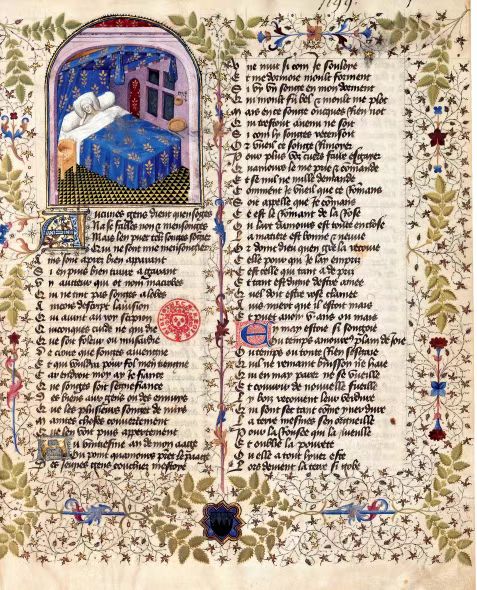 1499.
Aucunes gens dient quen songes
Na se fables non & mensonges
Mais len puet telz songes songer
Qui ne sont mie mensonger
A ins sont apres bien apparant
S i en puis bien traire a garant
aucteur qui ot non macrobes
Q ui ne tint pas songes a lobes
vision
Q ui avint au roy
Q uiconques cuide ne qui die
Q ue soit foleur ou musardie
D e croire que songes aviengne
E t qui vouldra pour fol men tiengne
C ar endroit moy ay je fiance
Q ue songes soit segnefiance
D e biens aux gens ou des ennuys
Q ue les plusieurs songent de nuis
M aintes choses couvertement
Q ue len voit puis appertement
Ou vintiesme an de mon aage
Ou point quamours prent le paage
D es jeunes gens couchez mestoye
U ne nuit si com je souloie
E t me dormoie moult forment
S i vy un songe en mon dorment
Q ui moult fu bel & moult me plot
M ais en ce songe onques rien not
Q ui trestout avenu ne soit
S i com li songes recensoit
O r vueil ce songe rimoyer
P our plus voz cuers faire esgayer
Q uamours le me prie & commande
E t se nul ne nulle demande
C omment je vueil que ce rommans
S oit appelle que je commans
C e est le Rommant de la Rose
O u lart damours est toute enclose
L a matiere est bonne & neuve
O r doint dieu quen gre la recoive
C elle pour qui je lay empris
C est celle qui tant a de pris
E t tant est digne destre amee
Q uel doit estre rose clamee
ans ou mais
En may estoie si songoie
Ou temps amoureux plain de joie
O u temps ou toute rien sesgaie
Q ue len ne
Q ui en may parer ne se vueille
E t couvrir de nouvelle fueille
L y bois recouvrent leur verdure
Q ui sont sec tant come yver dure
L a terre mesmes sen orgueille
P our la rousee qui la mueille
E t oublie la povrete
O u elle a tout liver este
L ors devient la terre si gobe